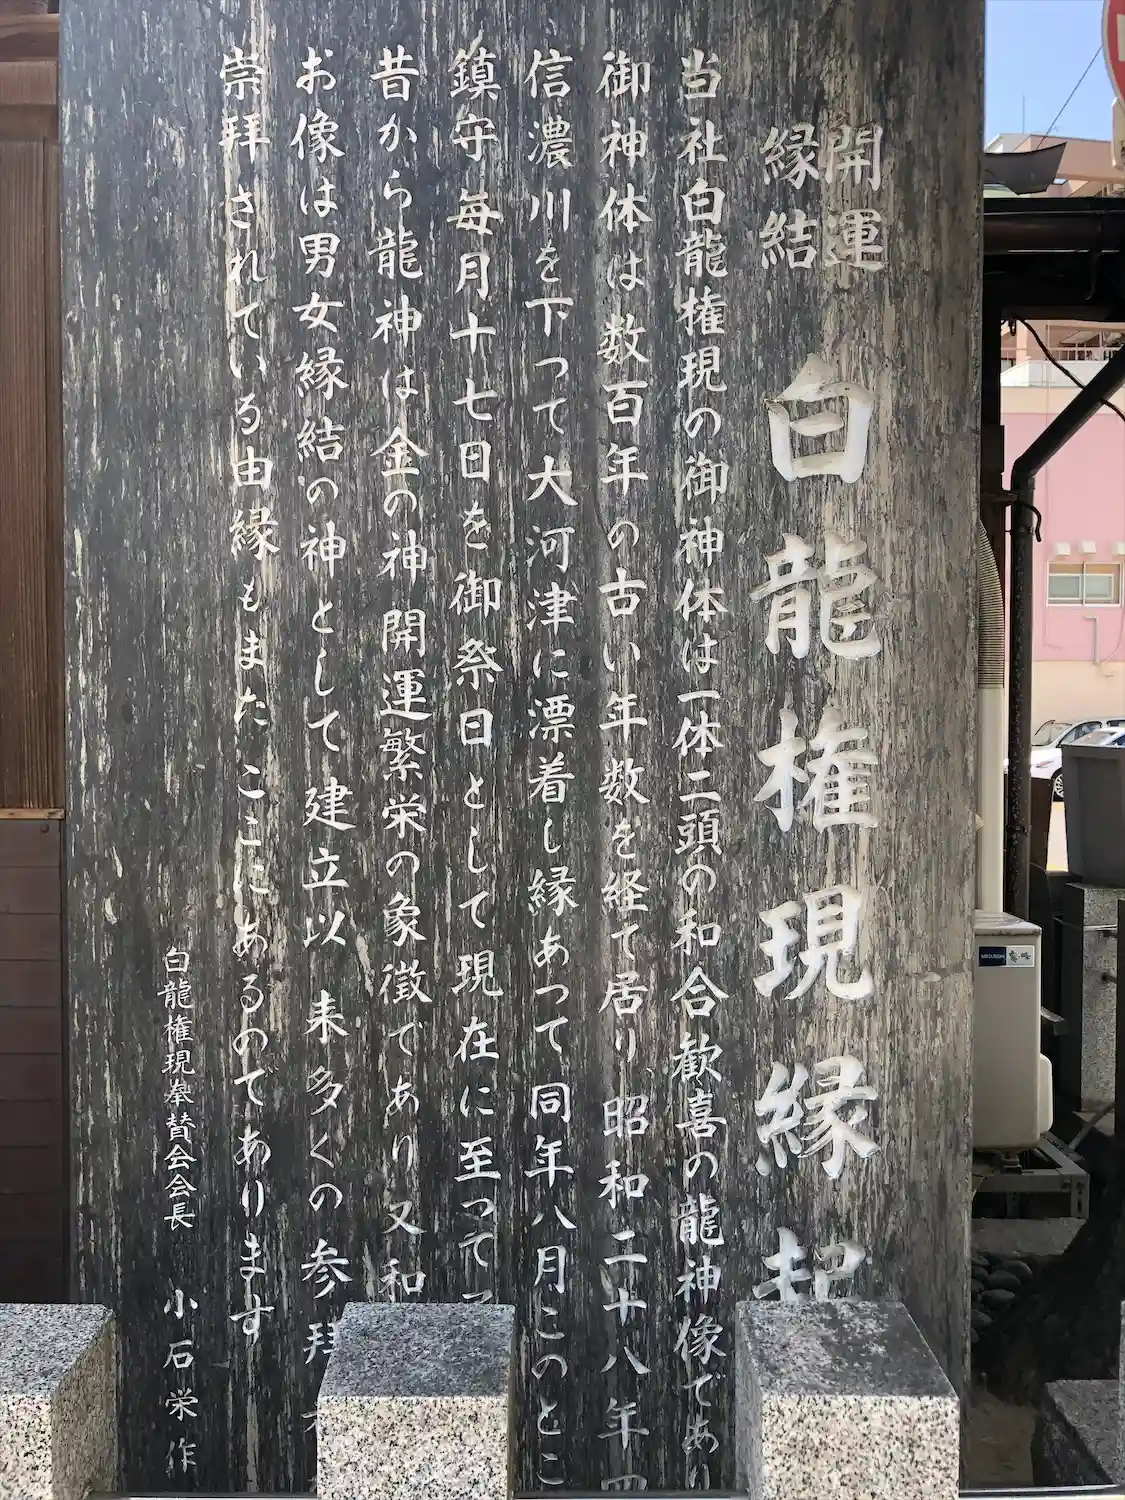 開運
縁結
白龍権現縁起
当社白龍権現の御神体は一体二頭の和合歓喜の龍神像であり
御神体は数百年の古い年数を経て居り昭和二十八年四
信濃川を下つて大河津に漂着し縁あつて同年八月このとこ
鎮守毎月十七日を御祭日として現在に至つて
昔から龍神は金の神開運繁栄の象徴であり又和
お像は男女縁結の神として建立以来多くの参拝
崇拝されている由縁もまたここにあるのてあります
白龍権現奉賛会会長 小石栄作
MITSUBISHI